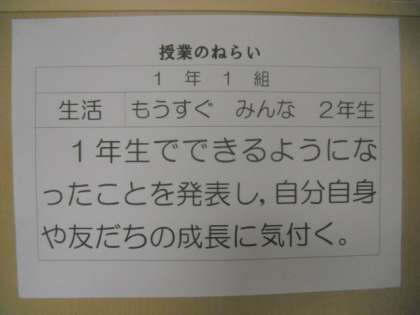 授業のねらい
1年1組
生活 もうすぐ みんな 2年生
1年生でできるようにな
ったことを発表し,自分自身
や友だちの成長に気付く。